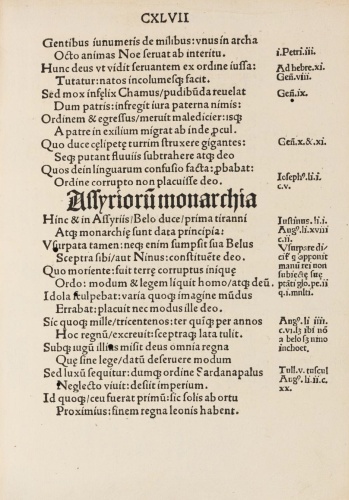 CXLVII
Gentibus iunumeris de milibus: vnus in archa
Octo animas Noe seruat ab interitu.
i.Petri.iii.
Hunc deus vt vidit seruantem ex ordine iussa:
Ad hebre.xi.
Tutatur: natos incolumesq; facit.
Geñ.viii.
Sed mox infęlix Chamus/pudibūda reuelat
Geñ.ix.
Dum patris: infregit iura paterna nimis:
Ordinem & egressus/meruit maledicier: isq;
A patre in exilium migrat ab inde ꝓcul.
Quo duce cęlipetę turrim struxere gigantes:
Geñ.x.&.xi.
Seq; putant fluuiis subtrahere atq; deo
Quos dein linguarum confusio facta: ꝓbabat:
Ioseph⁹.li.i.
Ordine corrupto non placuisse deo.
c.v.
Assyriorū monarchia
Hinc & in Assyriis/Belo duce/prima tiranni
Iustinus.li.i.
Atq; monarchię sunt data principia:
Aug⁹.li.xviii
c.ii.
Vsurpata tamen: neq; enim sumpsit sua Belus
Vsurpate
Sceptra sibi/aut Ninus: constituēte deo.
opponit
manū rei non
Quo moriente: fuit terrę corruptus iniquę
Ordo: modum & legem liquit homo/atq; deū.
Idola sculpebat: varia quoq; imagine mūdus
q.i.multi.
Errabat: placuit nec modus ille deo.
Sic quoq; mille/tricentenos: ter quīq; per annos
Aug⁹.li iiii.
Hoc regnū/excreuit: sceptraq; lata tulit.
Subq; iugū illius misit deus omnia regna
a belo
inchoet.
Quę sine lege/datū deseruere modum
Sed luxū sequitur: dumq; ordine Sardanapalus
Tull.v.tuscul
Aug⁹.li.ii.c.
Neglecto viuit: desiit imperium.
xx.
Id quoq;/ceu fuerat primū: sic solis ab ortu
Proximus: finem regna leonis habent.